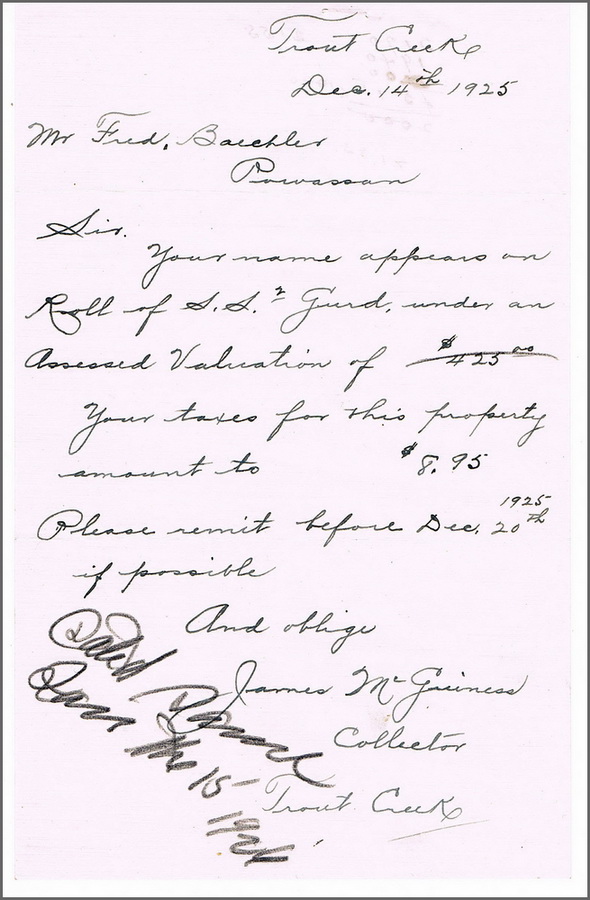 Trout Creek
Dec. 14th 1925
Mr Fred. Baechler
Powassan
Sir.
Your name appears on
Roll of S.S. 2 Gurd, under an
Assessed Valuation of $425.00
Your taxes for this property
amount to $8.95
Please remit before Dec. 20th 1925
if possible
And oblige
James McGuiness
Collector
Trout Creek
the 15